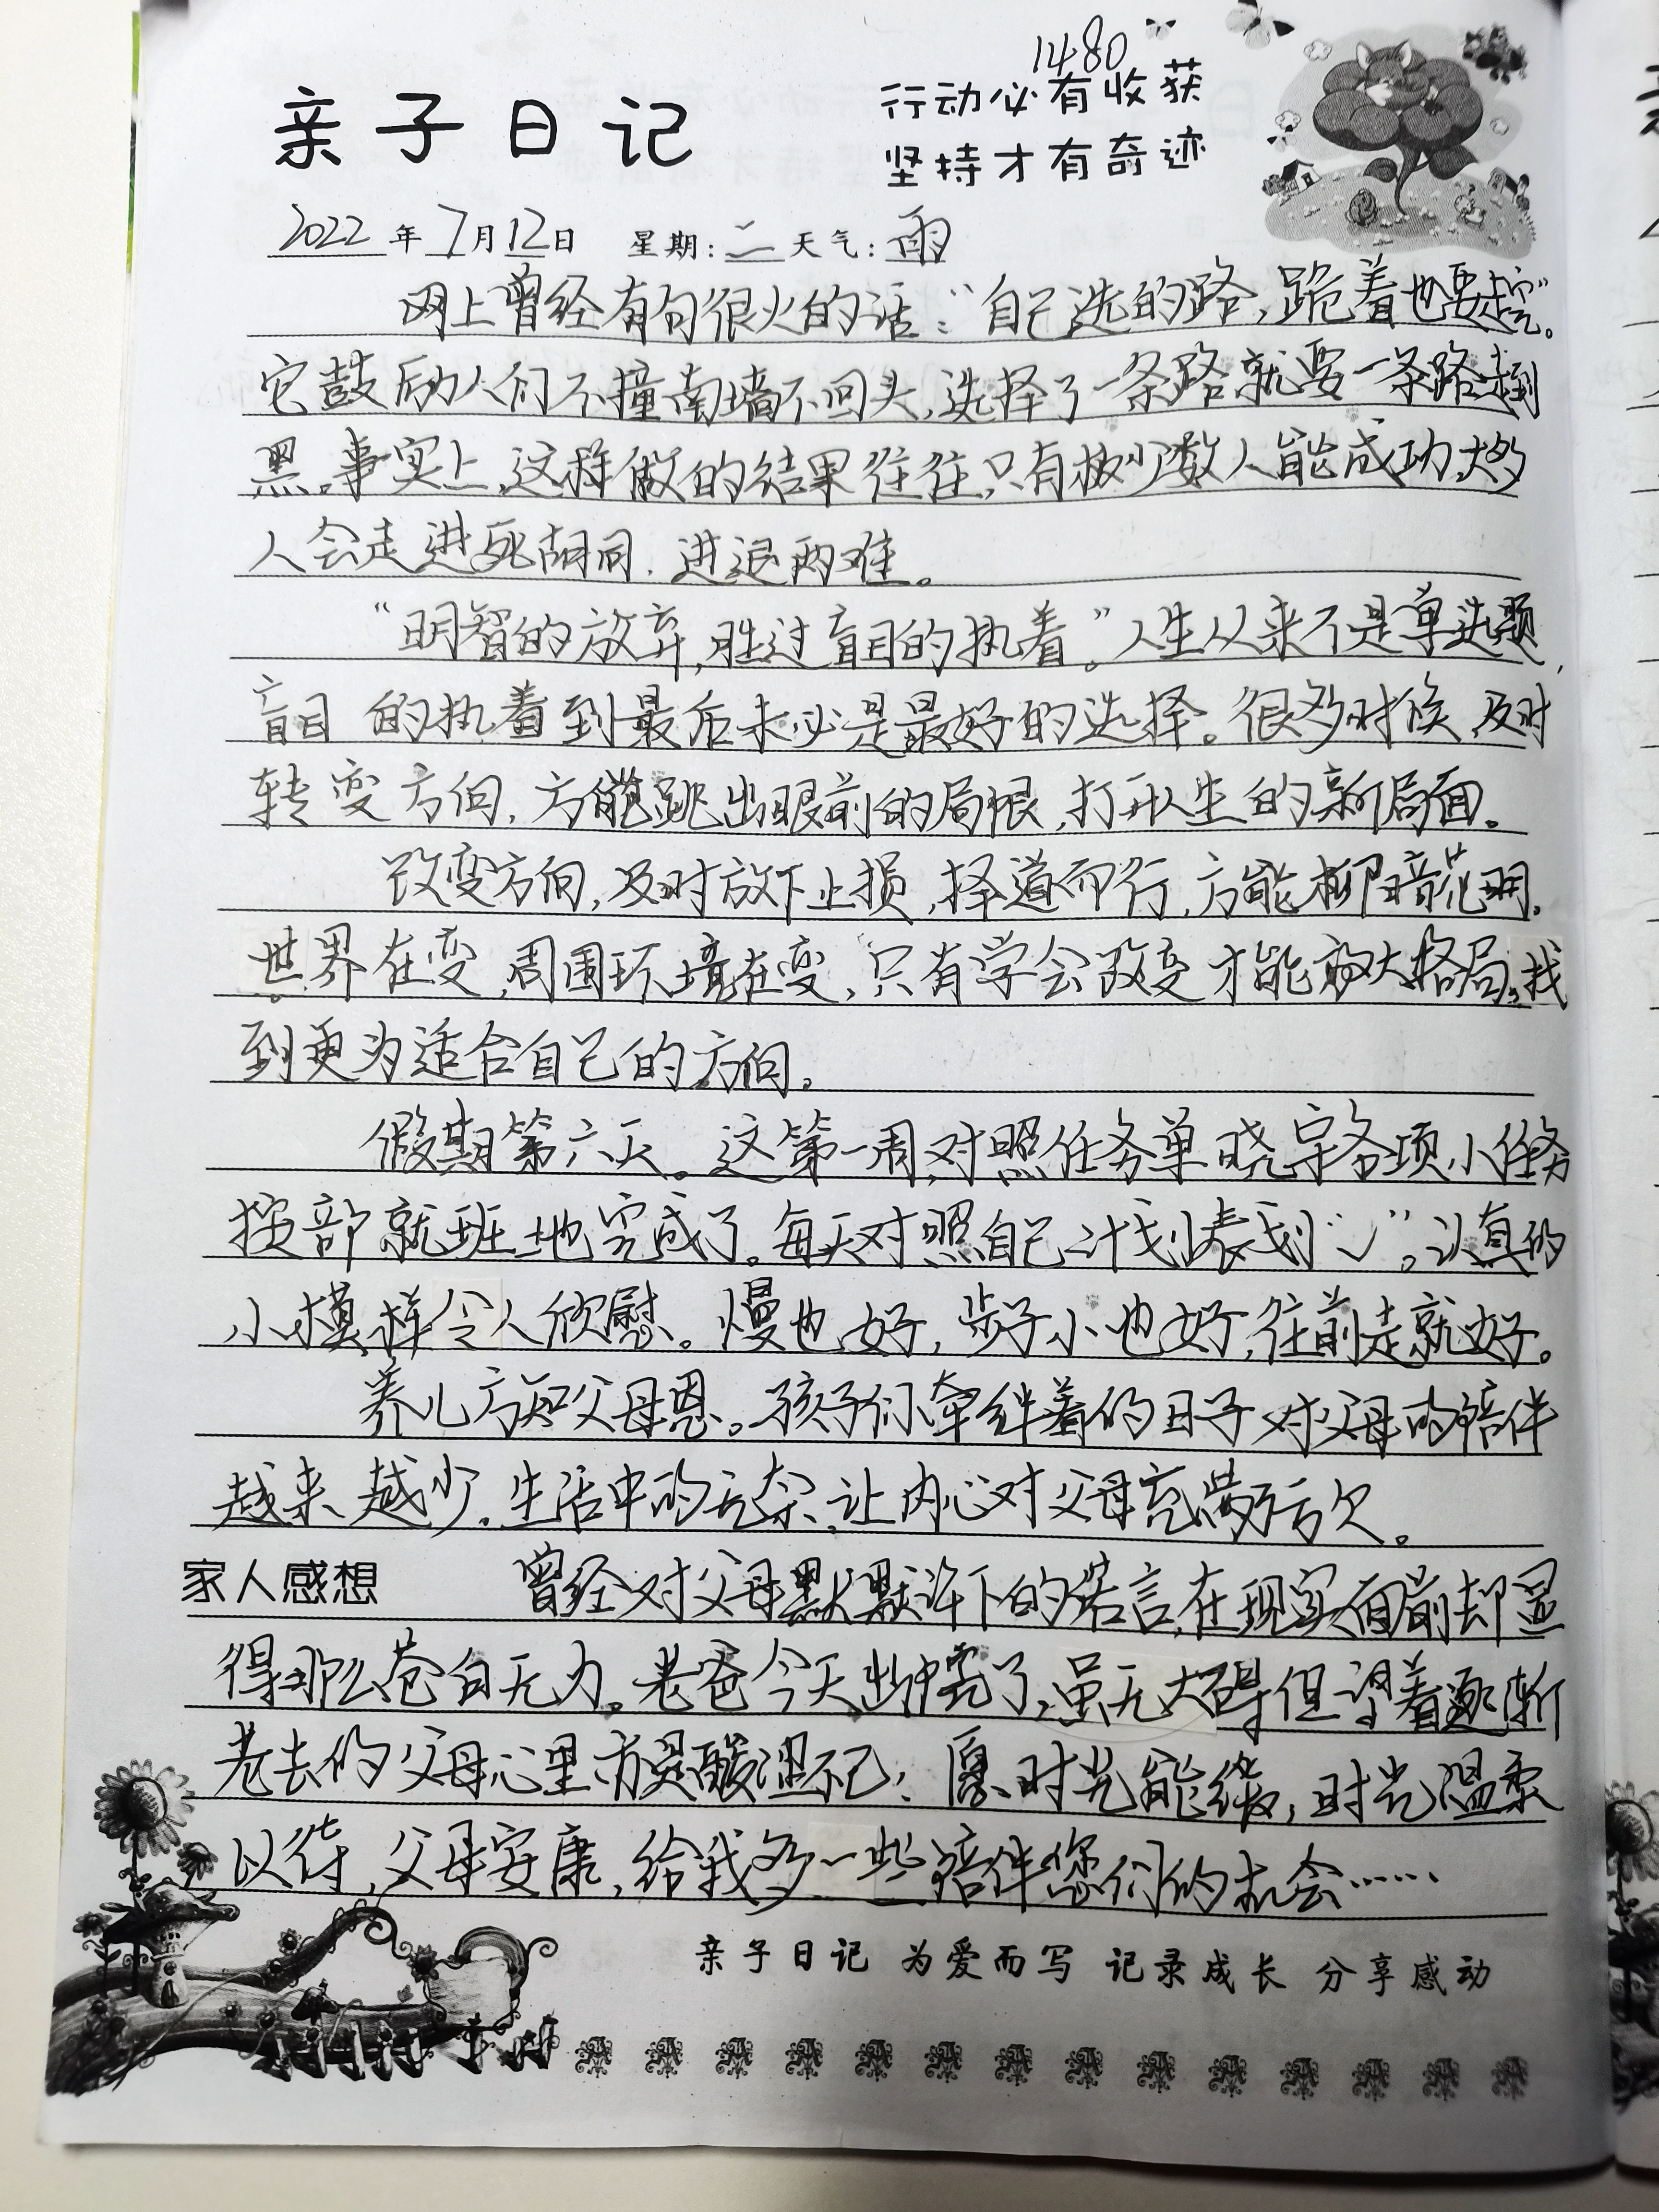 1480
亲子日记
行动必有收获
坚持才有奇迹
2022年7月12日 星期:二 天气:雨
网上曾经有句很火的话：“自己选的路，跪着也要走完”。
它鼓励人们不撞南墙不回头，选择了一条路就要一条路走到
黑。事实上，这样做的结果往往只有极少数人能成功，大多
人会走进死胡同，进退两难。
“明智的放弃，胜过盲目的执着。”人生从来不是单选题，
盲目的执着到最后未必是最好的选择。很多时候，及时
转变方向，方能跳出眼前的局限，打开人生的新局面。
改变方向，及时放下止损，择道而行，方能柳暗花明。
世界在变，周围环境在变，只有学会改变才能放大格局，找
到更为适合自己的方向。
假期第六天。这第一周，对照任务单晓宇各项小任务
按部就班地完成了。每天对照自己计划表划“√”，认真的
小模样令人欣慰。慢也好，步子小也好，往前走就好。
养儿方知父母恩。孩子们牵绊着的日子对父母的陪伴
越来越少，生活中的无奈，让内心对父母充满亏欠。
家人感想 曾经对父母默默许下的诺言，在现实面前却显
得那么苍白无力。老爸今天出院了，虽无大碍但望着逐渐
老去的父母心里亦是酸涩不已；愿时光能缓，时光温柔
以待，父母安康，给我多一些陪伴您们的机会……
亲子日记 为爱而写 记录成长 分享感动